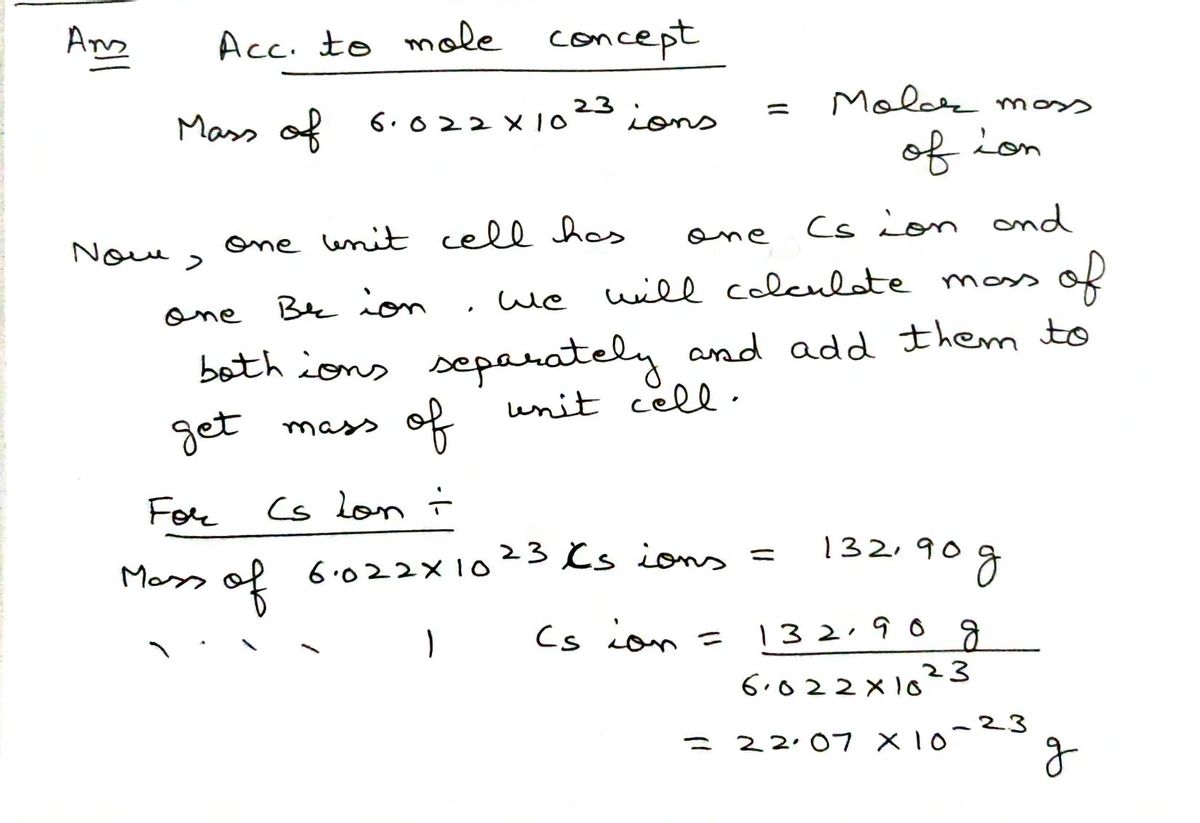 Ans Acc. to mole concept
Mass of 6.022 × 10²³ ions = Molar mass
of ion
Now, one unit cell has one Cs ion and
one Br ion. We will calculate mass of
both ions separately and add them to
get mass of unit cell.
For Cs ion ÷
Mass of 6.022×10²³ Cs ions = 132.90 g
〃 〃 1 Cs ion = 132.90 g
6.022×10²³
= 22.07 × 10⁻²³ g